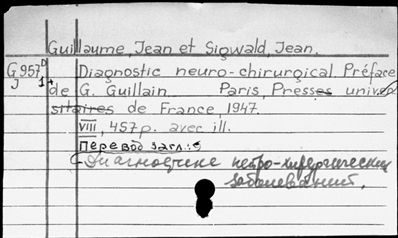 Guillaume, Jean et Sigwald, Jean.
G 957 D Diagnostic neuro-chirurgical. Préface
J 1+ de G. Guillain Paris, Presses univer
sitaires de France, 1947.
VIII, 457 p. avec ill.
Перевод загл.:
Диагностика нейро-хирургических
заболеваний.